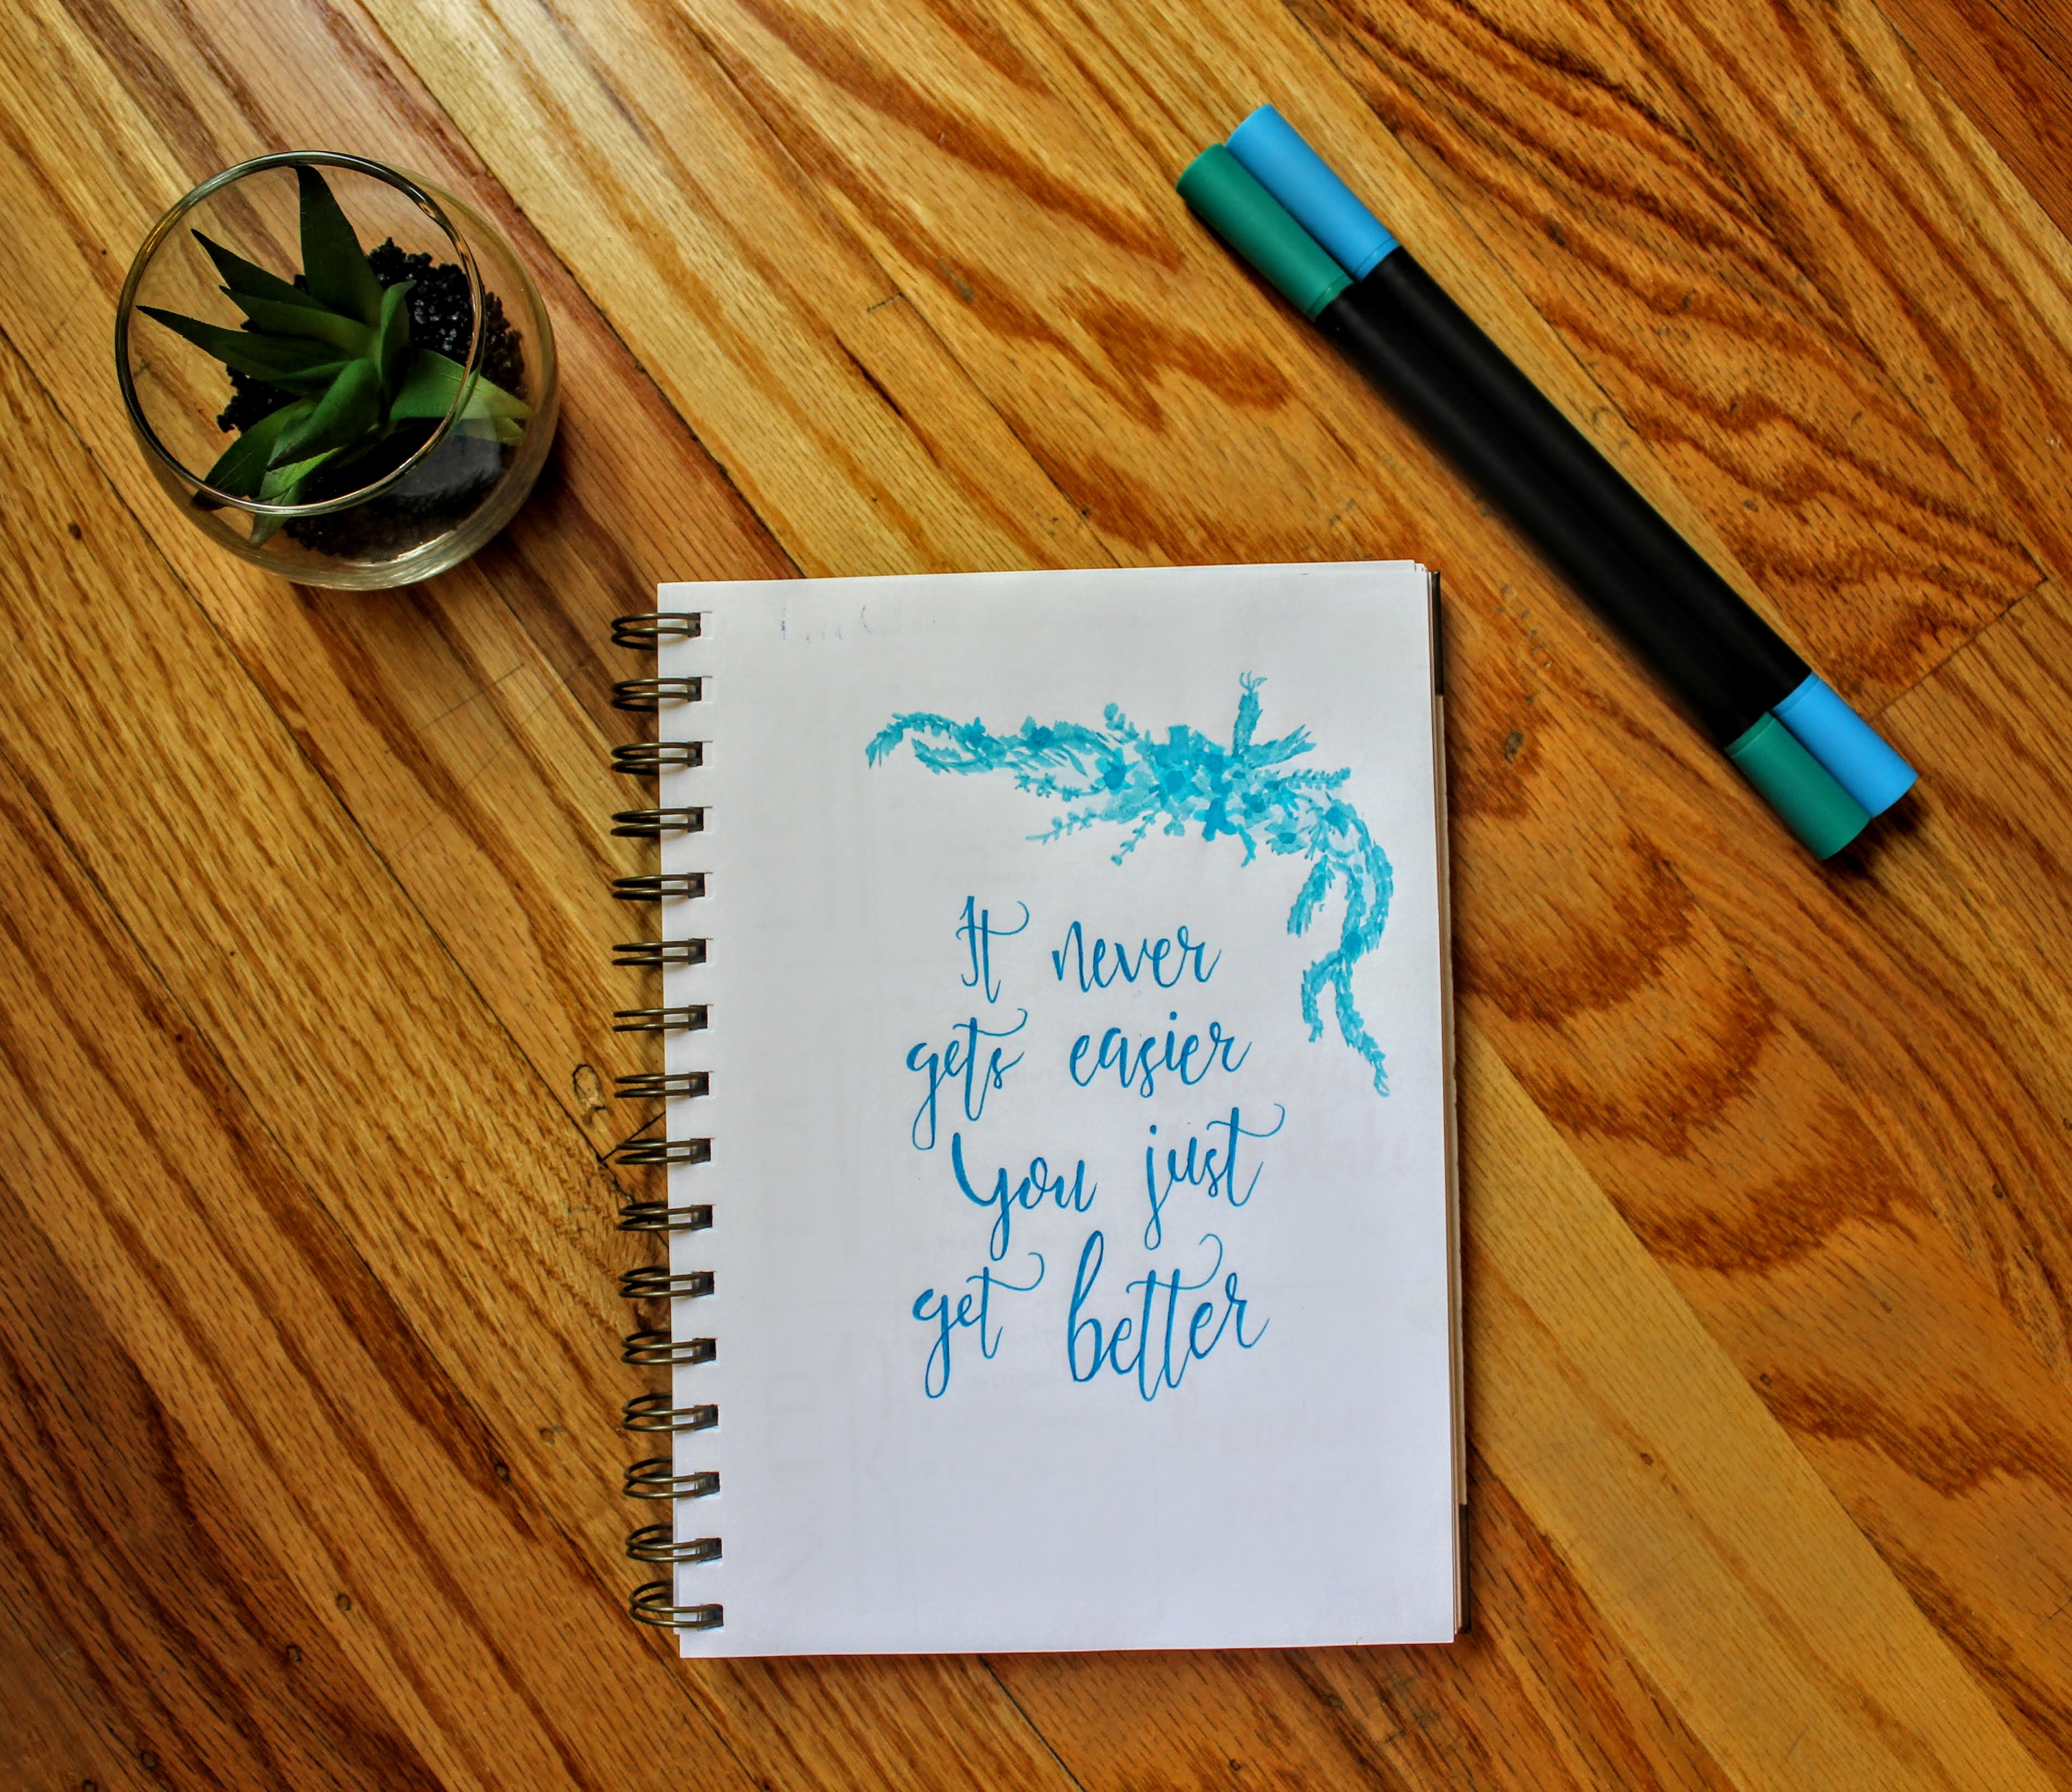 It never
gets easier
You just
get better